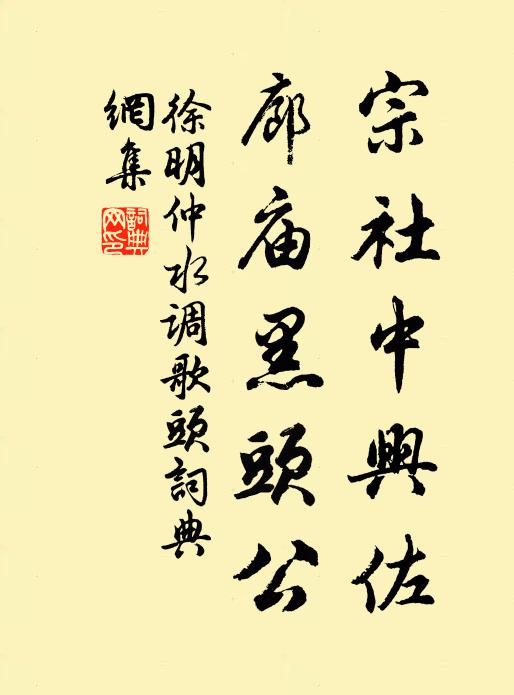 宗社中興佐
廊庙黑頭公
徐明仲水调歌頭詞典
網集
詞典網印